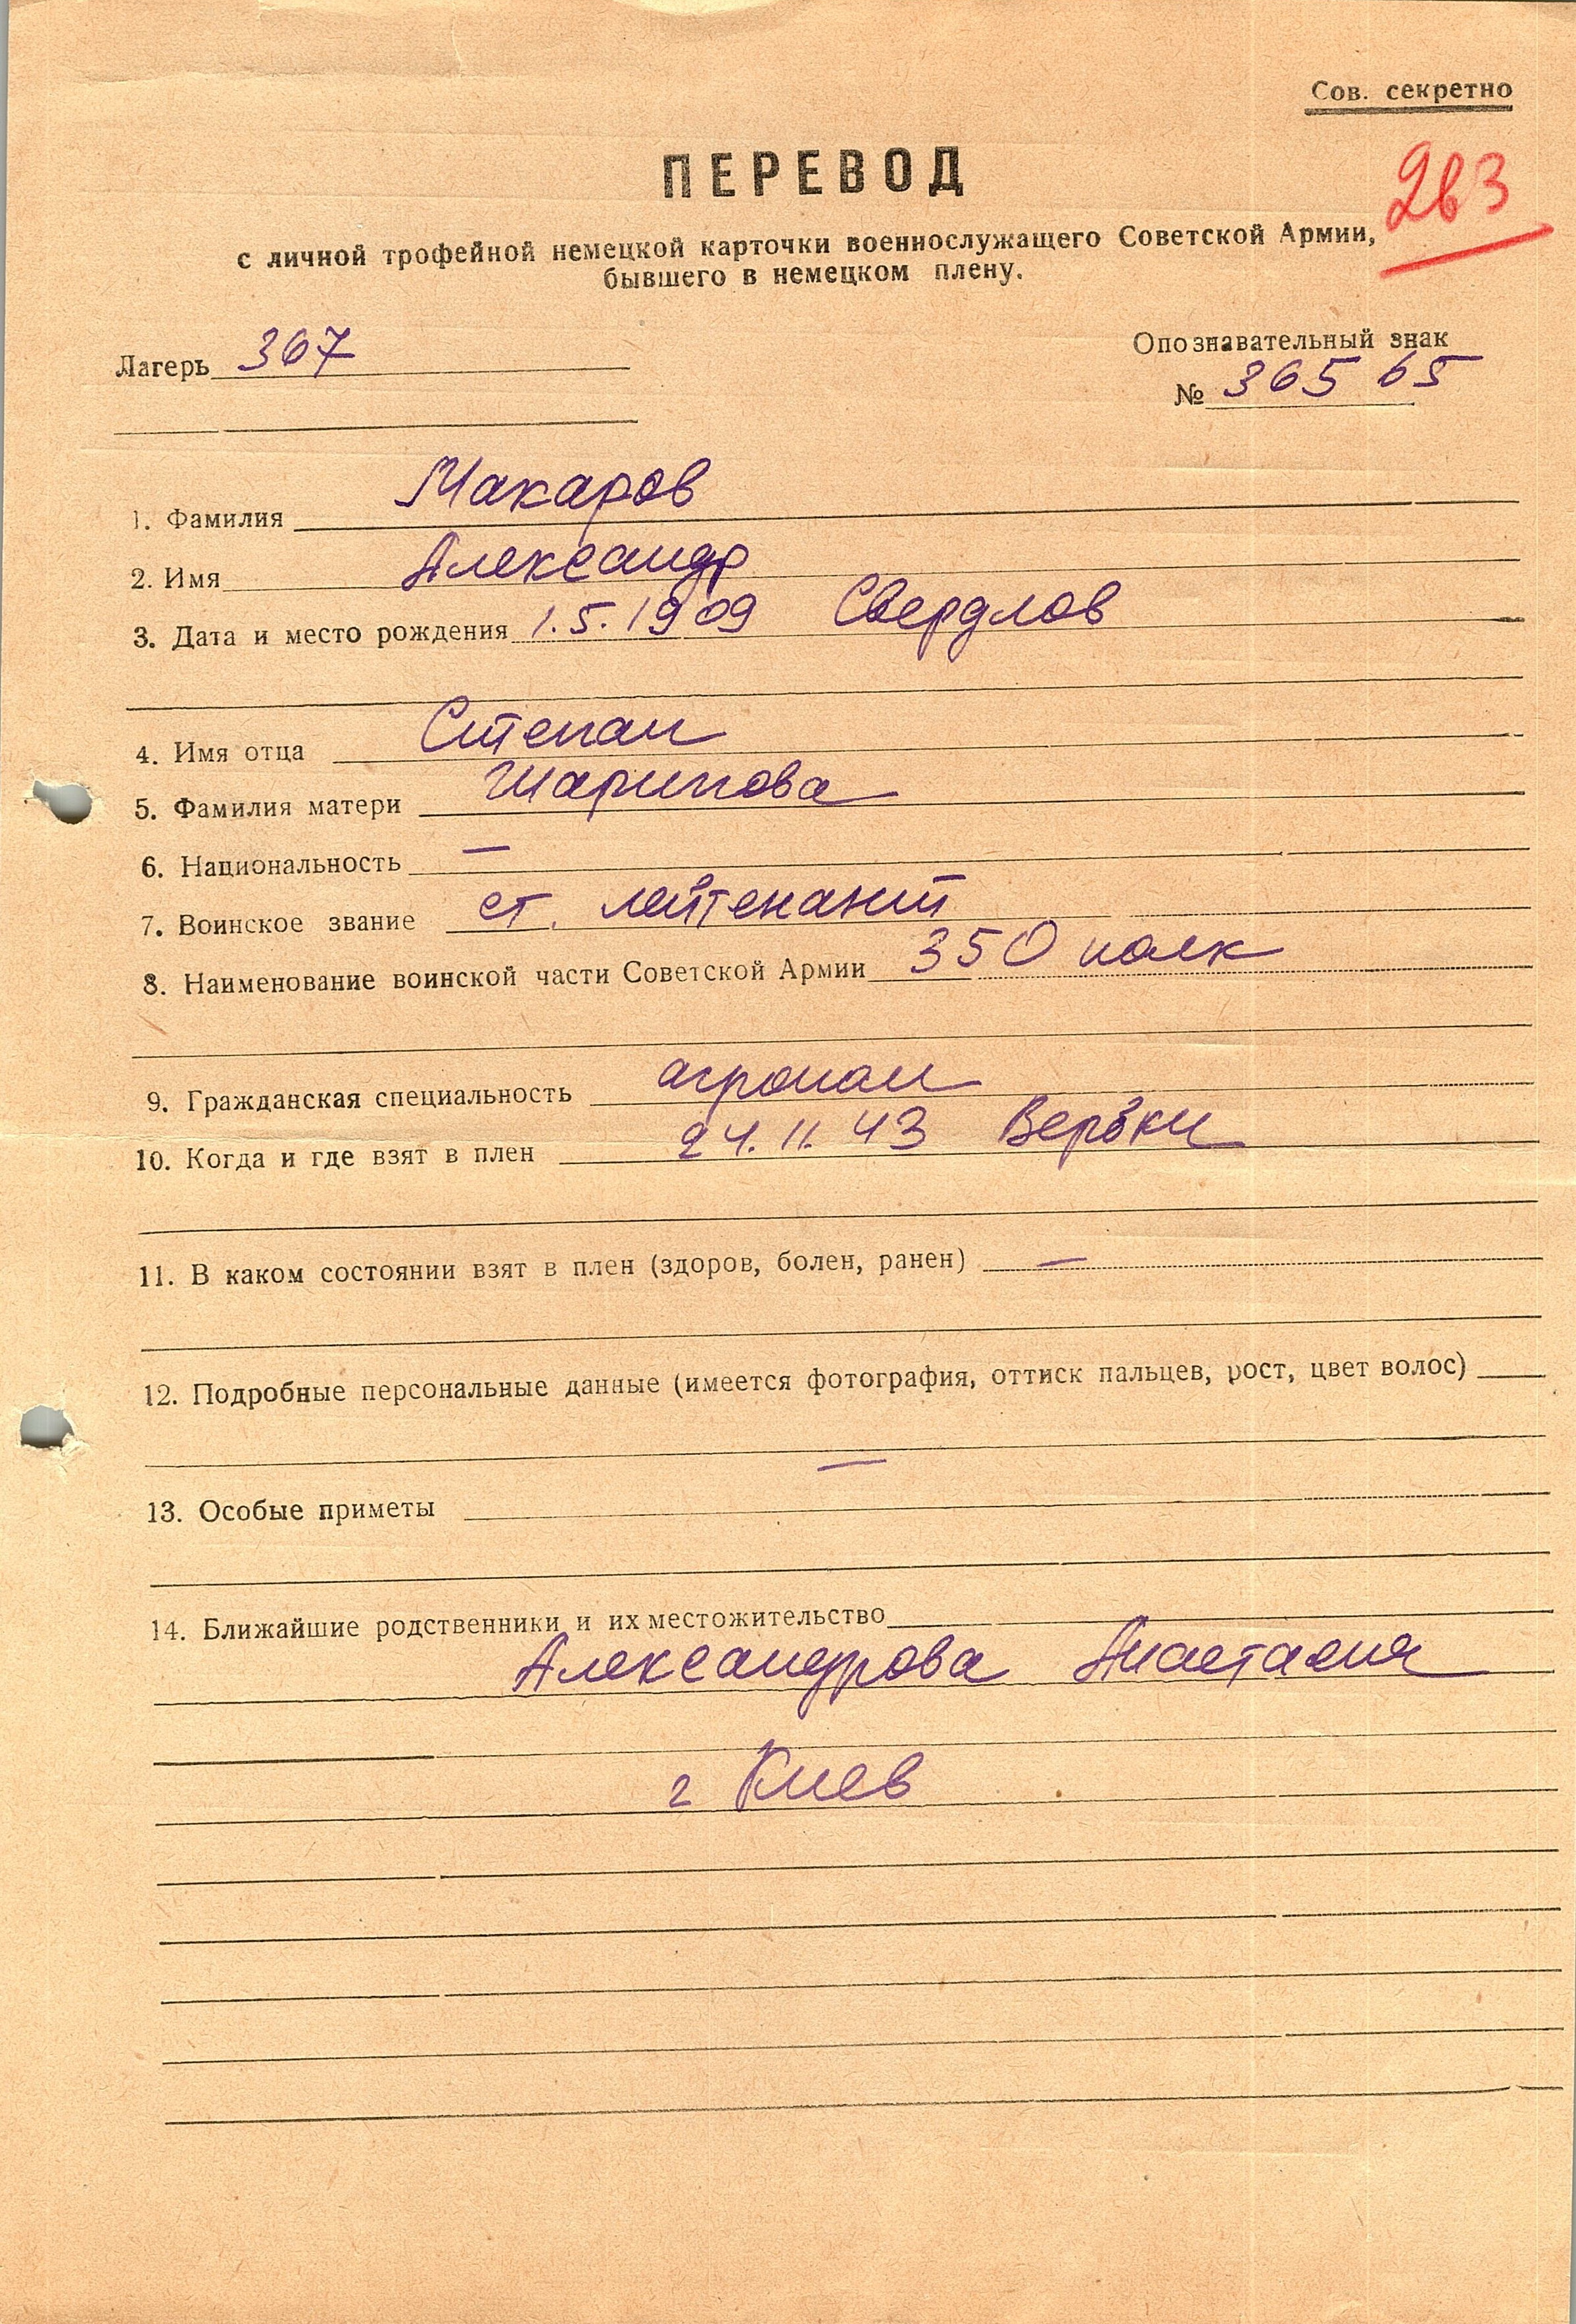 Сов. секретно
ПЕРЕВОД
263
с личной трофейной немецкой карточки военнослужащего Советской Армии,
бывшего в немецком плену.
Лагерь 367
Опознавательный знак
№ 365 65
1. Фамилия Макаров
2. Имя Александр
3. Дата и место рождения 1.5.1909 Свердлов
4. Имя отца Степан
5. Фамилия матери Шарипова
6. Национальность —
7. Воинское звание ст. лейтенант
8. Наименование воинской части Советской Армии 350 полк
9. Гражданская специальность агроном
10. Когда и где взят в плен 24.11.43 Вербки
11. В каком состоянии взят в плен (здоров, болен, ранен) —
12. Подробные персональные данные (имеется фотография, оттиск пальцев, рост, цвет волос)
—
13. Особые приметы
14. Ближайшие родственники и их местожительство
Александрова Анастасия
г Киев